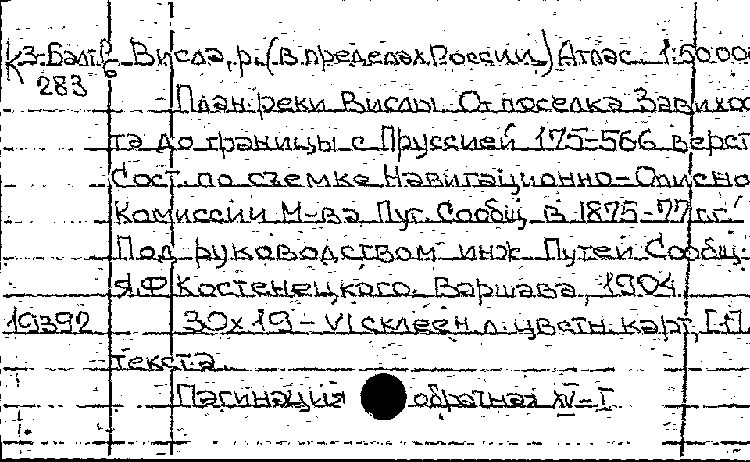 К3-Балт. 8 Висла, р. (в пределах России) Атлас. 1:50.000
283
План реки Вислы. От поселка Завихос
та до границы с Пруссией 175-566 верст
Сост. по съемке Навигационно-Описно
Комиссии М-ва Пут. Сообщ. в 1875-77 г.г.
Под руководством инж Путей Сообщ.
Я.Ф Костенецкого. Варшава, 1904.
19392 30х19 - VI склеен. л. цветн. карт, [1]
текста.
Пагинация обратная XIV-I